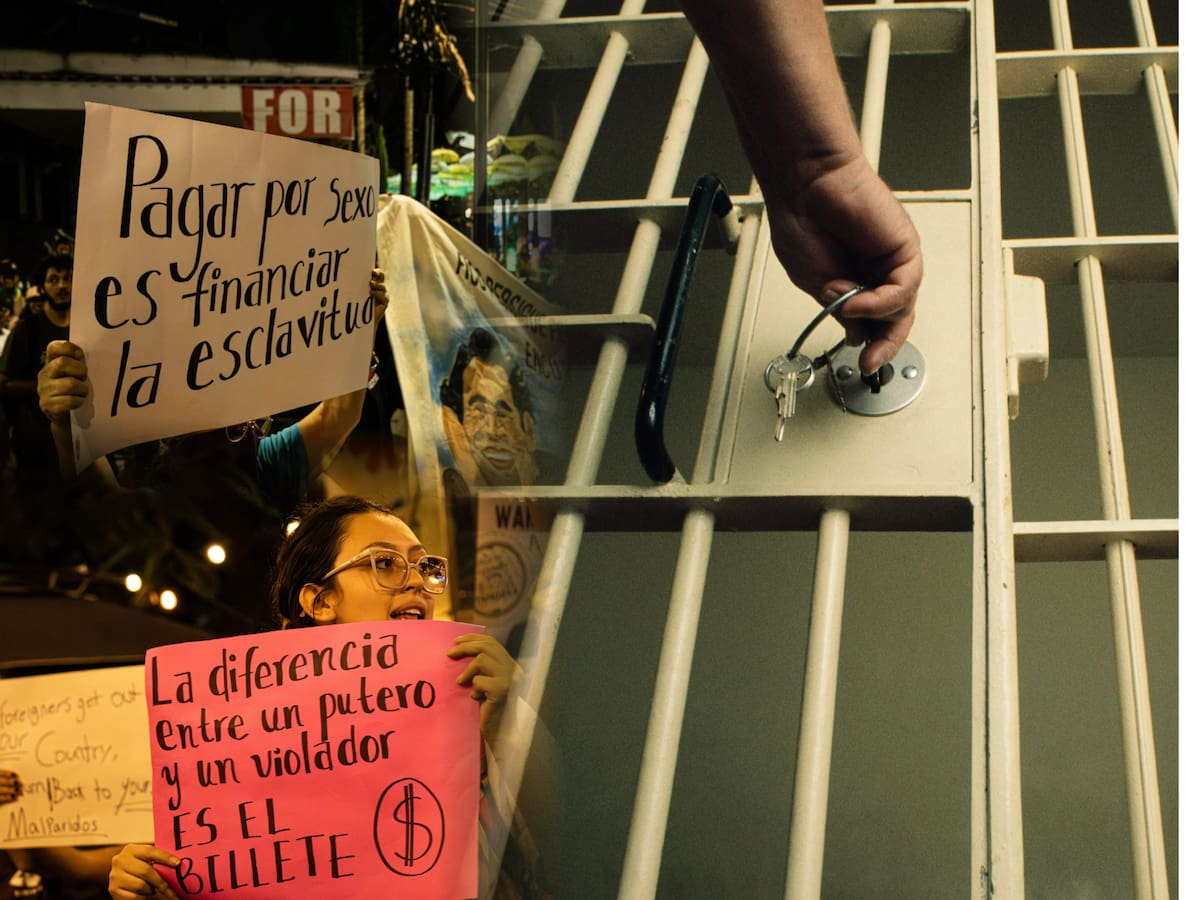 FOR
Pagar por sexo
es financiar
la esclavitud
WAN
La diferencia
entre un putero
y un violador
ES EL
BILLETE
$
foreigners get out
our Country,
Back to your
MalParidos